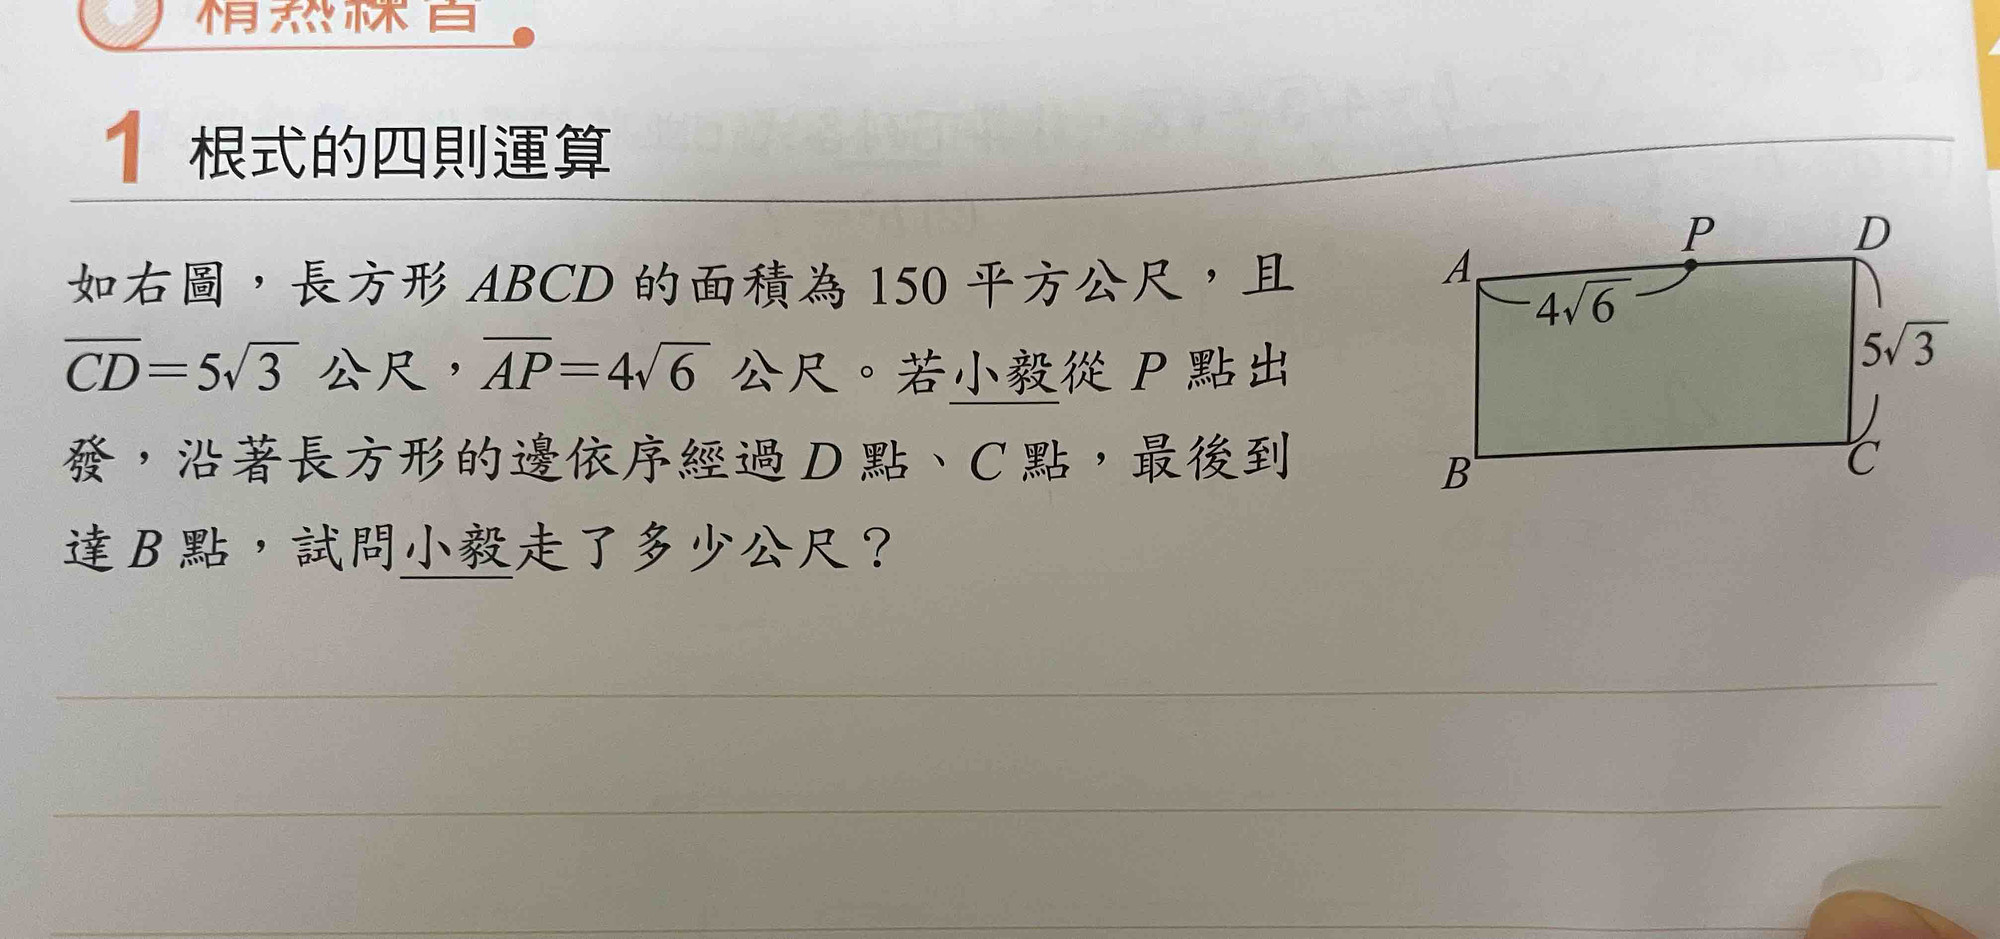 精熟練習
1 根式的四則運算
如右圖，長方形 ABCD 的面積為 150 平方公尺，且
CD＝5√3 公尺，AP＝4√6 公尺。若小毅從 P 點出
發，沿著長方形的邊依序經過 D 點、C 點，最後到
達 B 點，試問小毅走了多少公尺？
P
D
A
4√6
5√3
B
C